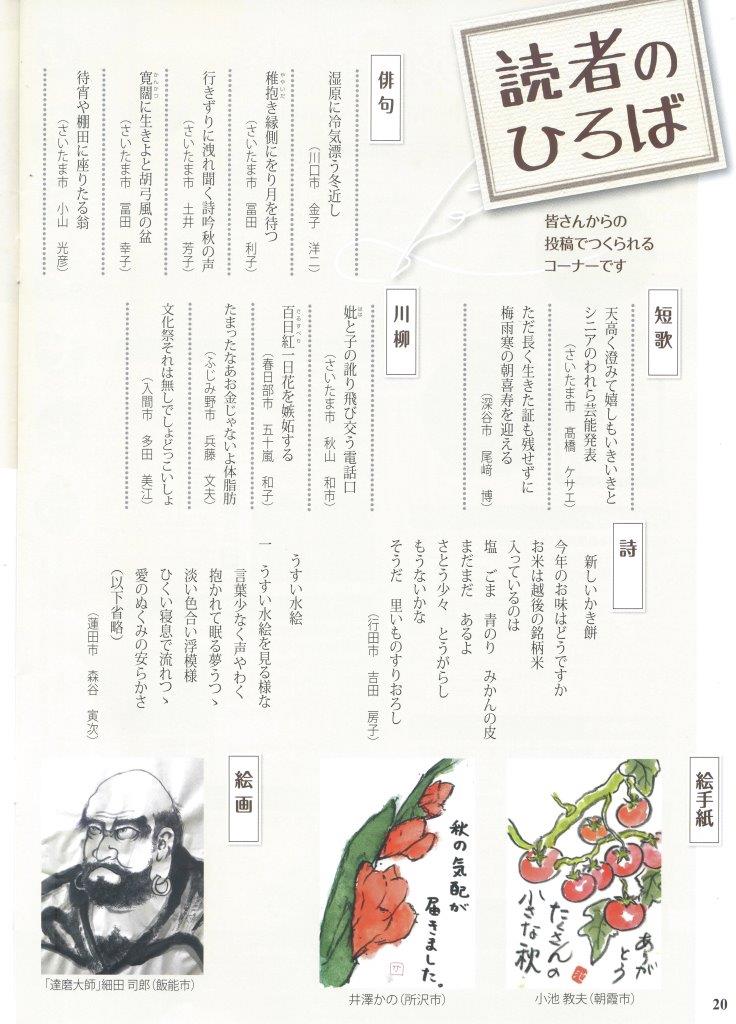 読者の
ひろば
皆さんからの
投稿でつくられる
コーナーです
俳句
湿原に冷気漂う冬近し
(川口市 金子 洋二)
稚抱き縁側にをり月を待つ
ややいだ
(さいたま市 冨田 利子)
行きずりに洩れ聞く詩吟秋の声
(さいたま市 土井 芳子)
寛闊に生きよと胡弓風の盆
かんかつ
(さいたま市 冨田 幸子)
待宵や棚田に座りたる翁
(さいたま市 小山 光彦)
短歌
天高く澄みて嬉しもいきいきと
シニアのわれら芸能発表
(さいたま市 髙橋 ケサエ)
ただ長く生きた証も残せずに
梅雨寒の朝喜寿を迎える
(深谷市 尾﨑 博)
川柳
妣と子の訛り飛び交う電話口
はは
(さいたま市 秋山 和市)
百日紅一日花を嫉妬する
さるすべり
(春日部市 五十嵐 和子)
たまったなあお金じゃないよ体脂肪
(ふじみ野市 兵藤 文夫)
文化祭それは無しでしょどっこいしょ
(入間市 多田 美江)
詩
新しいかき餅
今年のお味はどうですか
お米は越後の銘柄米
入っているのは
塩 ごま 青のり みかんの皮
まだまだ あるよ
さとう少々 とうがらし
もうないかな
そうだ 里いものすりおろし
(行田市 吉田 房子)
うすい水絵
一 うすい水絵を見る様な
言葉少なく声やわく
抱かれて眠る夢うつゝ
淡い色合い浮模様
ひくい寝息で流れつゝ
愛のぬくみの安らかさ
(以下省略)
(蓮田市 森谷 寅次)
絵手紙
ありが
とう
たくさんの
小さな秋
池
小池 教夫(朝霞市)
秋の気配が
届きました。
井澤かの(所沢市)
絵画
「達磨大師」細田 司郎(飯能市)
20